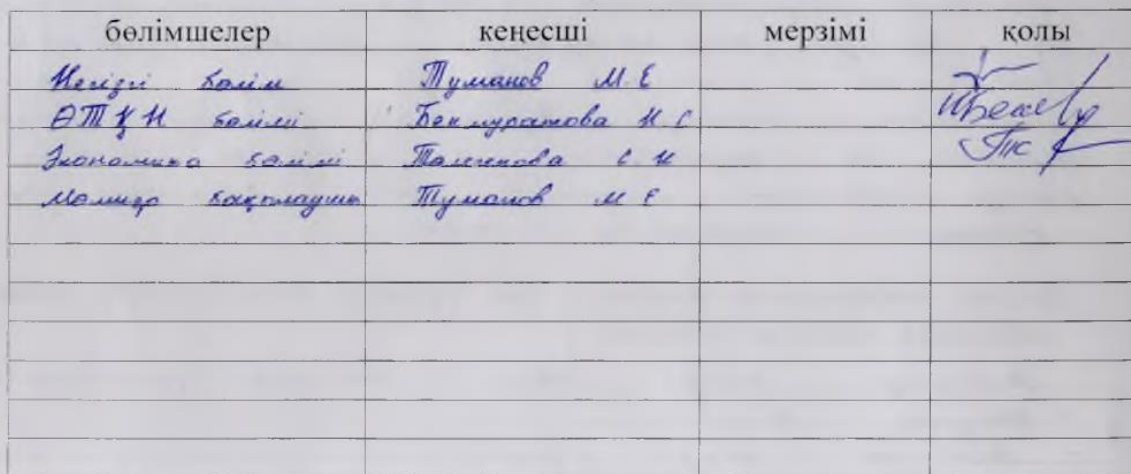 бөлімшелер кеңесші мерзімі қолы
Негізгі бөлім Туманов М.Е
ӨТҚН бөлімі Бекмуратова Н С
Экономика бөлімі С Н
бақылаушы Туманов М Е